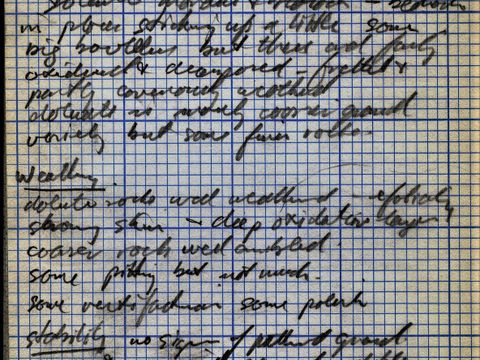 in places sticking up a little some
big boulders but these are fairly
oxidised & decomposed – pitted &
partly cavernously weathered
dolerite is mostly coarser grained
variety but some finer rocks.
Weathering.
dolerite rocks well weathered – exfoliating
strong stain – deep oxidation layer
coarser rock well crumbled.
some pitting but not much.
some ventifaction some polish
stability no sign of patterned ground